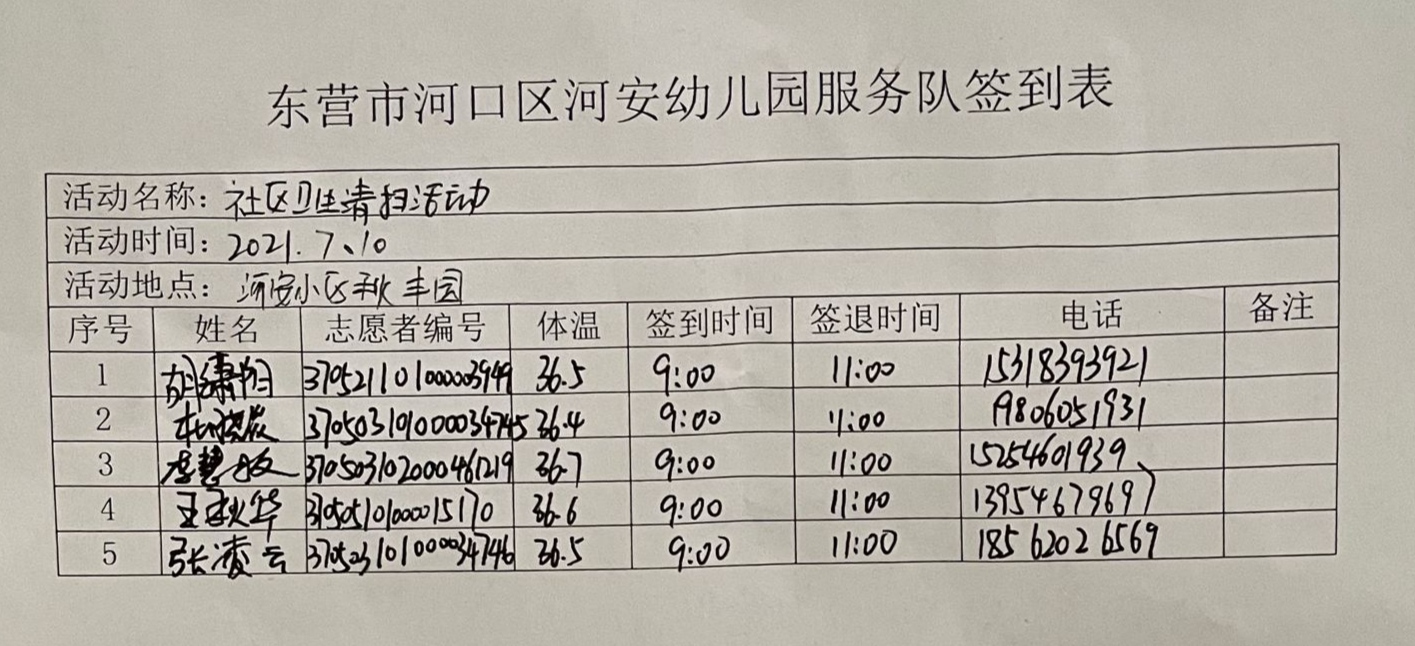 东营市河口区河安幼儿园服务队签到表
活动名称：社区卫生清扫活动
活动时间：2021.7、10
活动地点：河安小区秋丰园
序号 姓名 志愿者编号 体温 签到时间 签退时间 电话 备注
1 370521101000003949 36.5 9:00 11:00 15318393921
2 370503101000034745 36.4 9:00 11:00 19806051931
3 370503102000461219 36.7 9:00 11:00 15254601939
4 王秋华 36.6 9:00 11:00 13954679697
5 张凌云 370503101000034746 36.5 9:00 11:00 18562026569